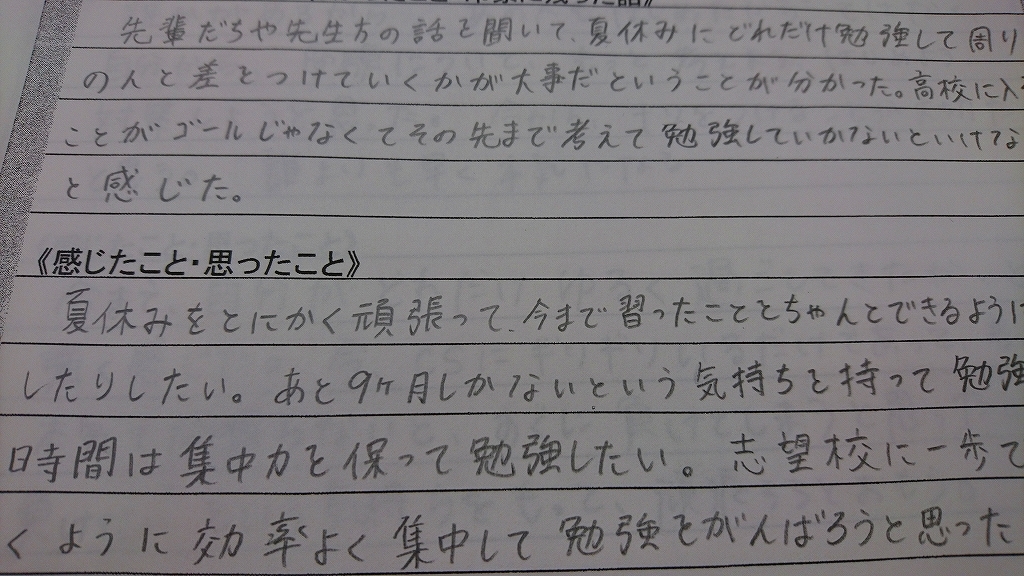 先輩だちや先生方の話を聞いて、夏休みにどれだけ勉強して周り
の人と差をつけていくかが大事だということが分かった。高校に入
ことがゴールじゃなくてその先まで考えて勉強していかないといけな
と感じた。
《感じたこと・思ったこと》
夏休みをとにかく頑張って、今まで習ったこととちゃんとできるように
したりしたい。あと9ヶ月しかないという気持ちを持って勉強
時間は集中力を保って勉強したい。志望校に一歩で
くように効率よく集中して勉強をがんばろうと思った